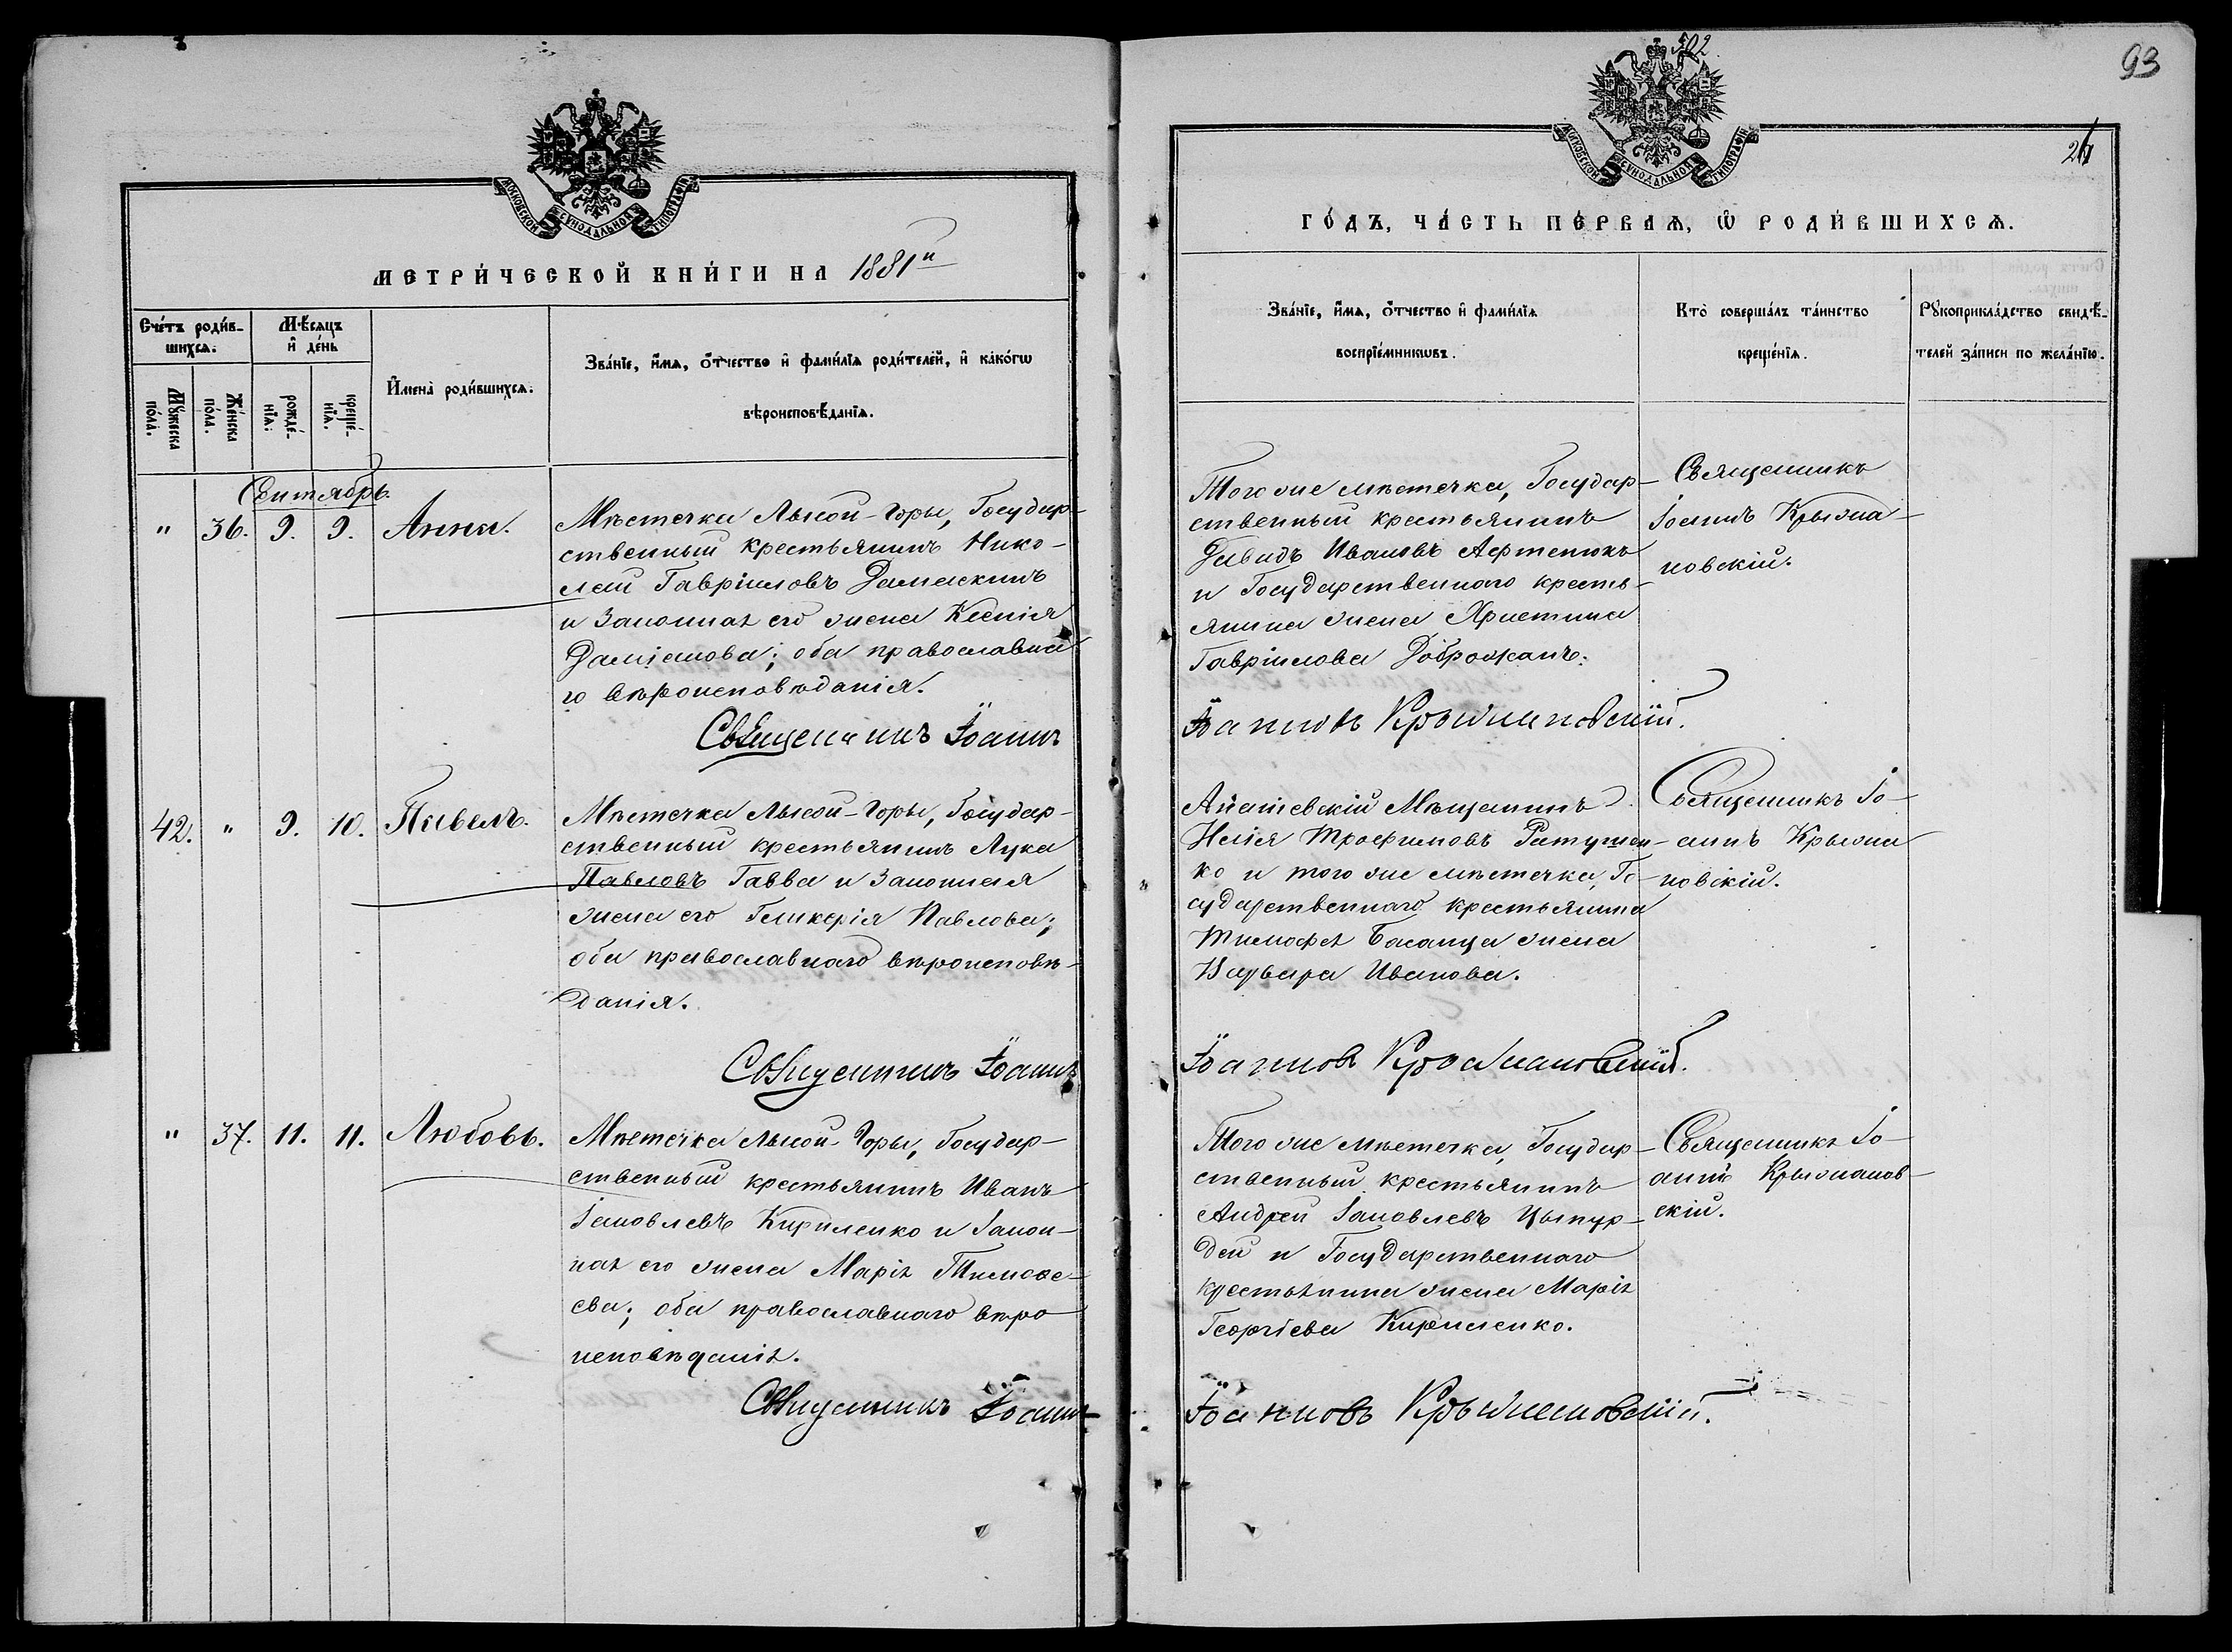 МОСКОВСКОЙ СѴНОДАЛЬНОЙ ТИПОГРАФІИ
МЕТРИ́ЧЕСКОЙ КНИ́ГИ НА 1881й
Сче́тъ роди́вшихся.
Мѣ́сяцъ и де́нь
Имена̀ роди́вшихся.
Зва́нїе, и́мя, о́тчество и фами́лїя роди́телей, и како́гѡ
вѣроисповѣ́данїя.
Мꙋ́жеска по́ла.
Же́нска по́ла.
рожде́нїя.
креще́нїя.
Сентябрь.
" 36. 9. 9. Анна.
Мѣстечка Лысой-Горы, Государ-
ственный крестьянинъ Нико-
лай Гавріиловъ Дамаскинъ
и Законная его жена Ксенія
Даміанова; оба православна-
го вѣроисповѣданія.
Священникъ Іоаннъ
42. " 9. 10. Павелъ.
Мѣстечка Лысой-Горы, Государ-
ственный крестьянинъ Лука
Павловъ Гавва и Законная
жена его Гликерія Павлова;
оба православнаго вѣроисповѣ-
данія.
Священникъ Іоаннъ
" 37. 11. 11. Любовь.
Мѣстечка Лысой-Горы, Государ-
ственный крестьянинъ Иванъ
Іаковлевъ Кириленко и Закон-
ная его жена Марія Тимоѳе-
ева; оба православнаго вѣро
исповѣданія.
Священникъ Іоаннъ
502
93
МОСКОВСКОЙ СѴНОДАЛЬНОЙ ТИПОГРАФІИ
ГО́ДЪ, ЧА́СТЬ ПЕ́РВАЯ, Ѡ РОДИ́ВШИХСЯ.
Зва́нїе, и́мя, о́тчество и фами́лїя
воспрїе́мникѡвъ.
Кто̀ соверша́лъ та́инство
креще́нїя.
Рꙋкоприкла́дство свидѣ́-
телей за́писи по жела́нїю.
Того же мѣстечка, Государ-
ственный крестьянинъ
Давидъ Ивановъ Афтенюкъ
и Государственнаго кресть-
янина жена Христина
Гавріилова Доброжанъ.
Священникъ
Іоаннъ Крыжа-
новскій.
Іоанновъ Крыжановскій.
Ананьевскій Мѣщанинъ
Трофимовъ Ратушен-
ко и того же мѣстечка, Го-
сударственнаго крестьянина
Тимофея Басанца жена
Варвара Иванова.
Священникъ Іо-
аннъ Крыжа
новскій.
Іоанновъ Крыжановскій.
Того же мѣстечка, Государ-
ственный крестьянинъ
Андрей Іаковлевъ Цыпур-
дей и Государственнаго
крестьянина жена Марія
Георгіева Кириленко.
Священникъ Іо-
аннъ Крыжанов-
скій.
Іоанновъ Крыжановскій.